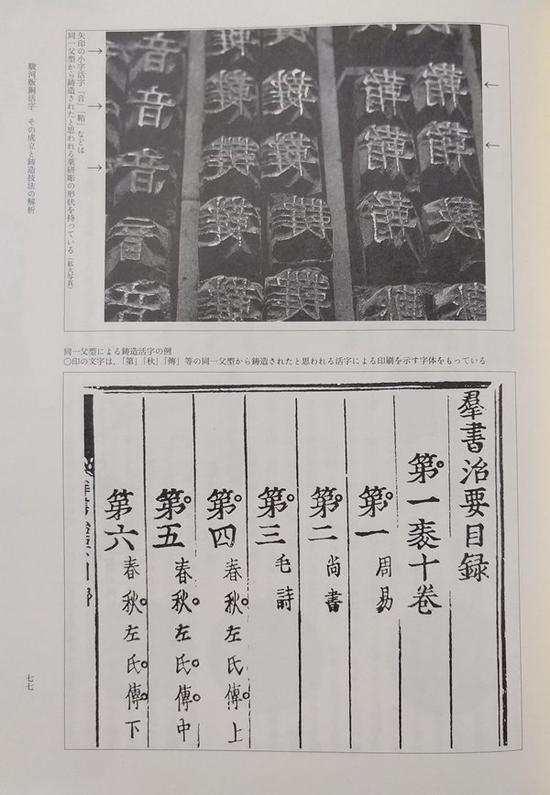 矢印の小字活字「音」「鞱」などは
同一父型から鋳造されたと思われる薬研彫の形状を持っている(拡大写真)
駿河版銅活字 その成立と鋳造技法の解析
音
音
音
音
音
同一父型による鋳造活字の例
○印の文字は、「第」「秋」「傳」等の同一父型から鋳造されたと思われる活字による印刷を示す字体をもっている
羣書治要目録
第一袠十卷
第一 周易
第二 尚書
第三 毛詩
第四 春秋左氏傳上
第五 春秋左氏傳中
第六 春秋左氏傳下
七七